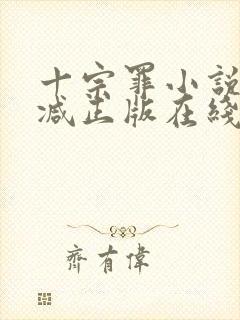 十宗罪小説
减正版在綫
齊有偉